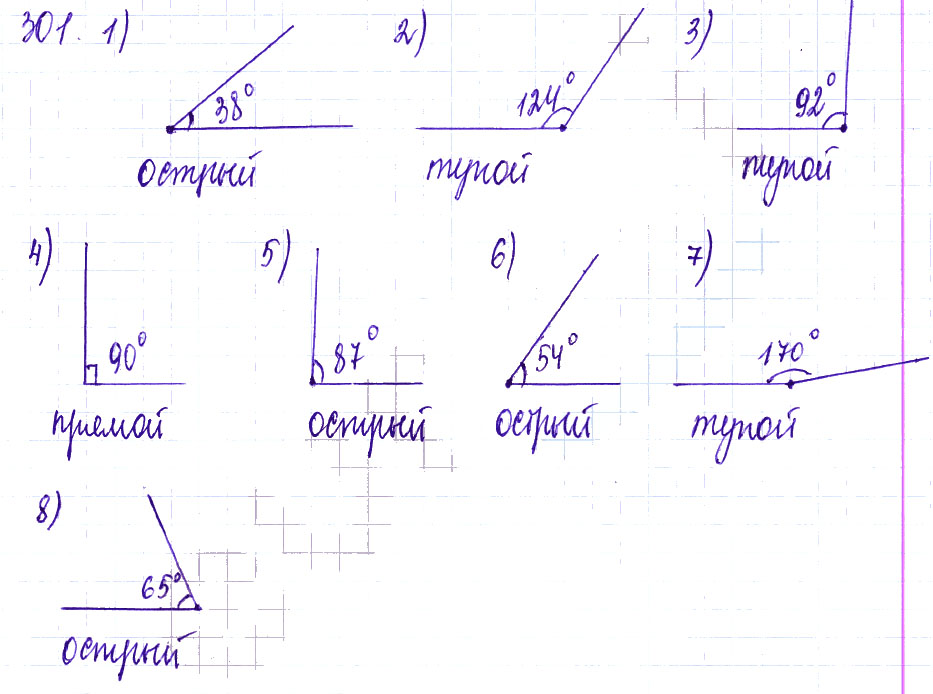 301. 1) 38° 2) 124° 3) 92°
острый тупой тупой
4) 90° 5) 87° 6) 54° 7) 170°
прямой острый острый тупой
8) 65°
острый